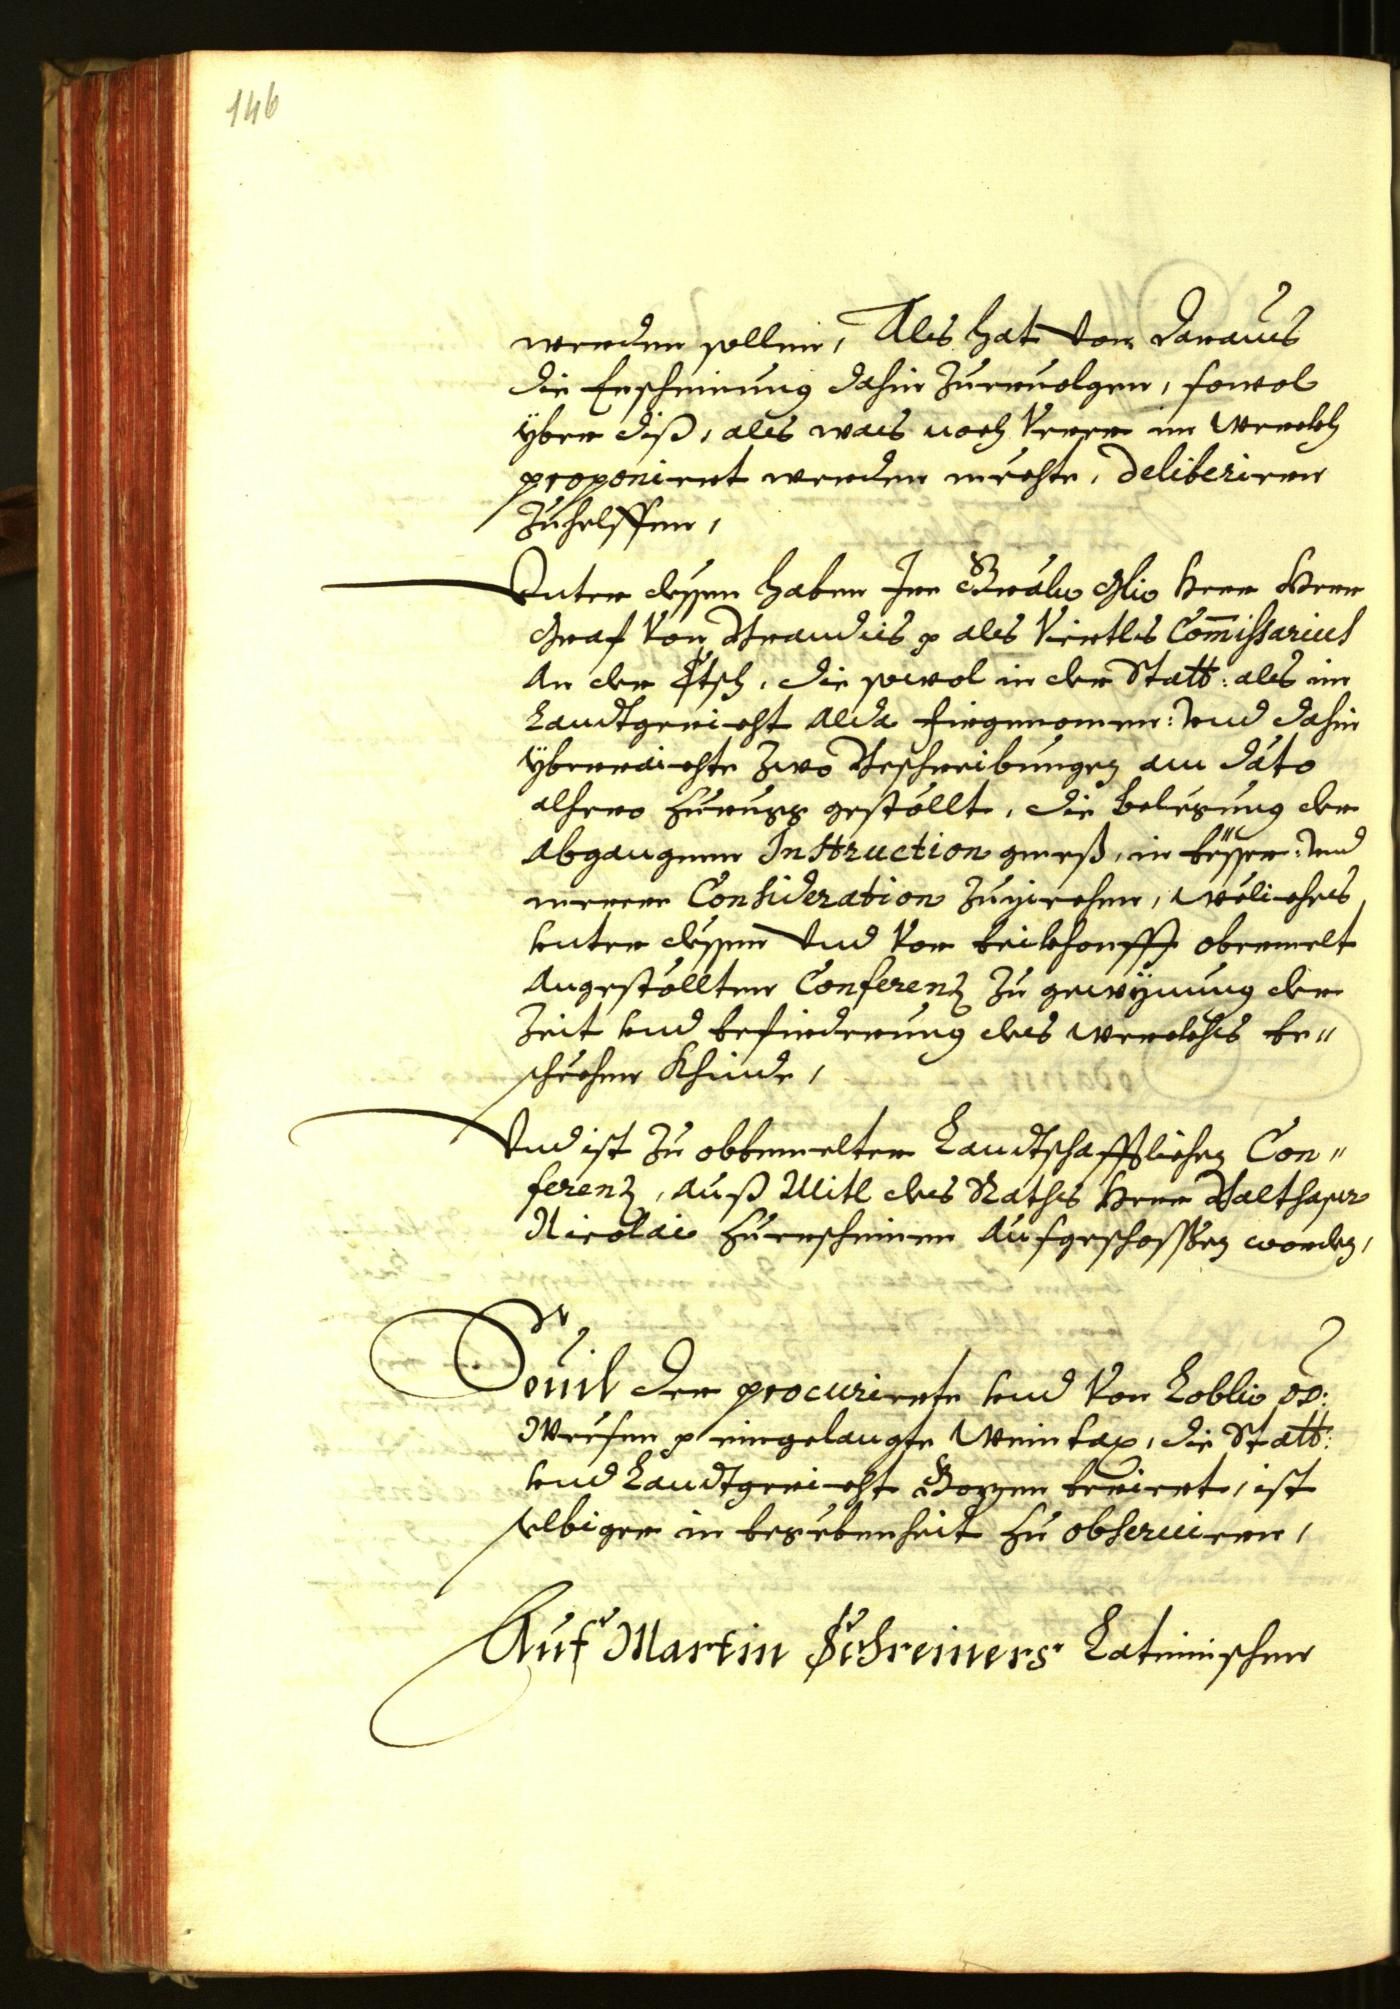 146
werden sollen, Als hat von daraus
die Erscheinung dahin zuervolgen, sowol
yber diß, als was noch verer im werckh
proponiert werden mechte, deliberiren
zuhelffen,
Unter dessen haben Ire Herr Herr
Graf von Brandis p als Viertls Commissarius
an der Etsch, die sowol in der Statt: als im
Landtgericht alda firgenomen: und dahin
yberraichte zwo Beschreibungen an dato
alhero zuruss gestöllt, die belesung der
abgangnen Instruction gmeß, in besser: und
merere Consideration zuziechen, weliches
unter dessen und vor obermelt
angestöllter Conferenz zu gewynung der
Zeit und befirderung des werckhs be„
schechen khinde,
Und ist zu obbemelter Landtschafftlichen Con„
ferenz, auß Mitl des Raths Herr Balthaser
Nicolai zuerscheinen aufgeschossen worden,
Souil der procurierte und von Loblic: oö:
Weesen p eingelangte Weintax, die Statt:
und Landtgericht Bozen beriert, ist
selbiger in begebenheit zu obseruieren,
Auf Martin Schreiners Lateinischen